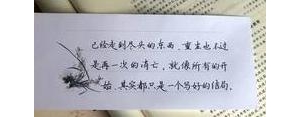 已经走到尽头的东西，重生也不过
是再一次的消亡。就像所有的开
始，其实都只是一个写好的结局。